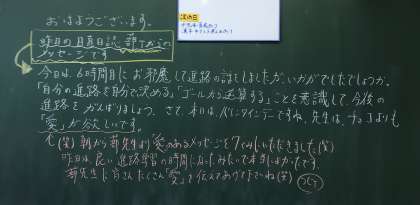 おはようございます。
昨日の日直日誌、部でからの
メッセージです
今日は、6時間目にお邪魔して進路の話をしましたが、いかがでしたでしょうか。
「自分の進路を自分で決める」「ゴールから逆算する」ことを意識して、今後の
進路をがんばりましょう。さて、本日は、バレンタインデーですね。先生は、チョコよりも
「愛」が欲しいです。
(笑)朝から 先生より「愛のあるメッセージを7くみにいただきました(笑)
昨日は、良い進路学習の時間になったみたいで本当によかったです。
先生に皆さんたくさん「愛」を伝えてあげて下さいね(笑)
次の日